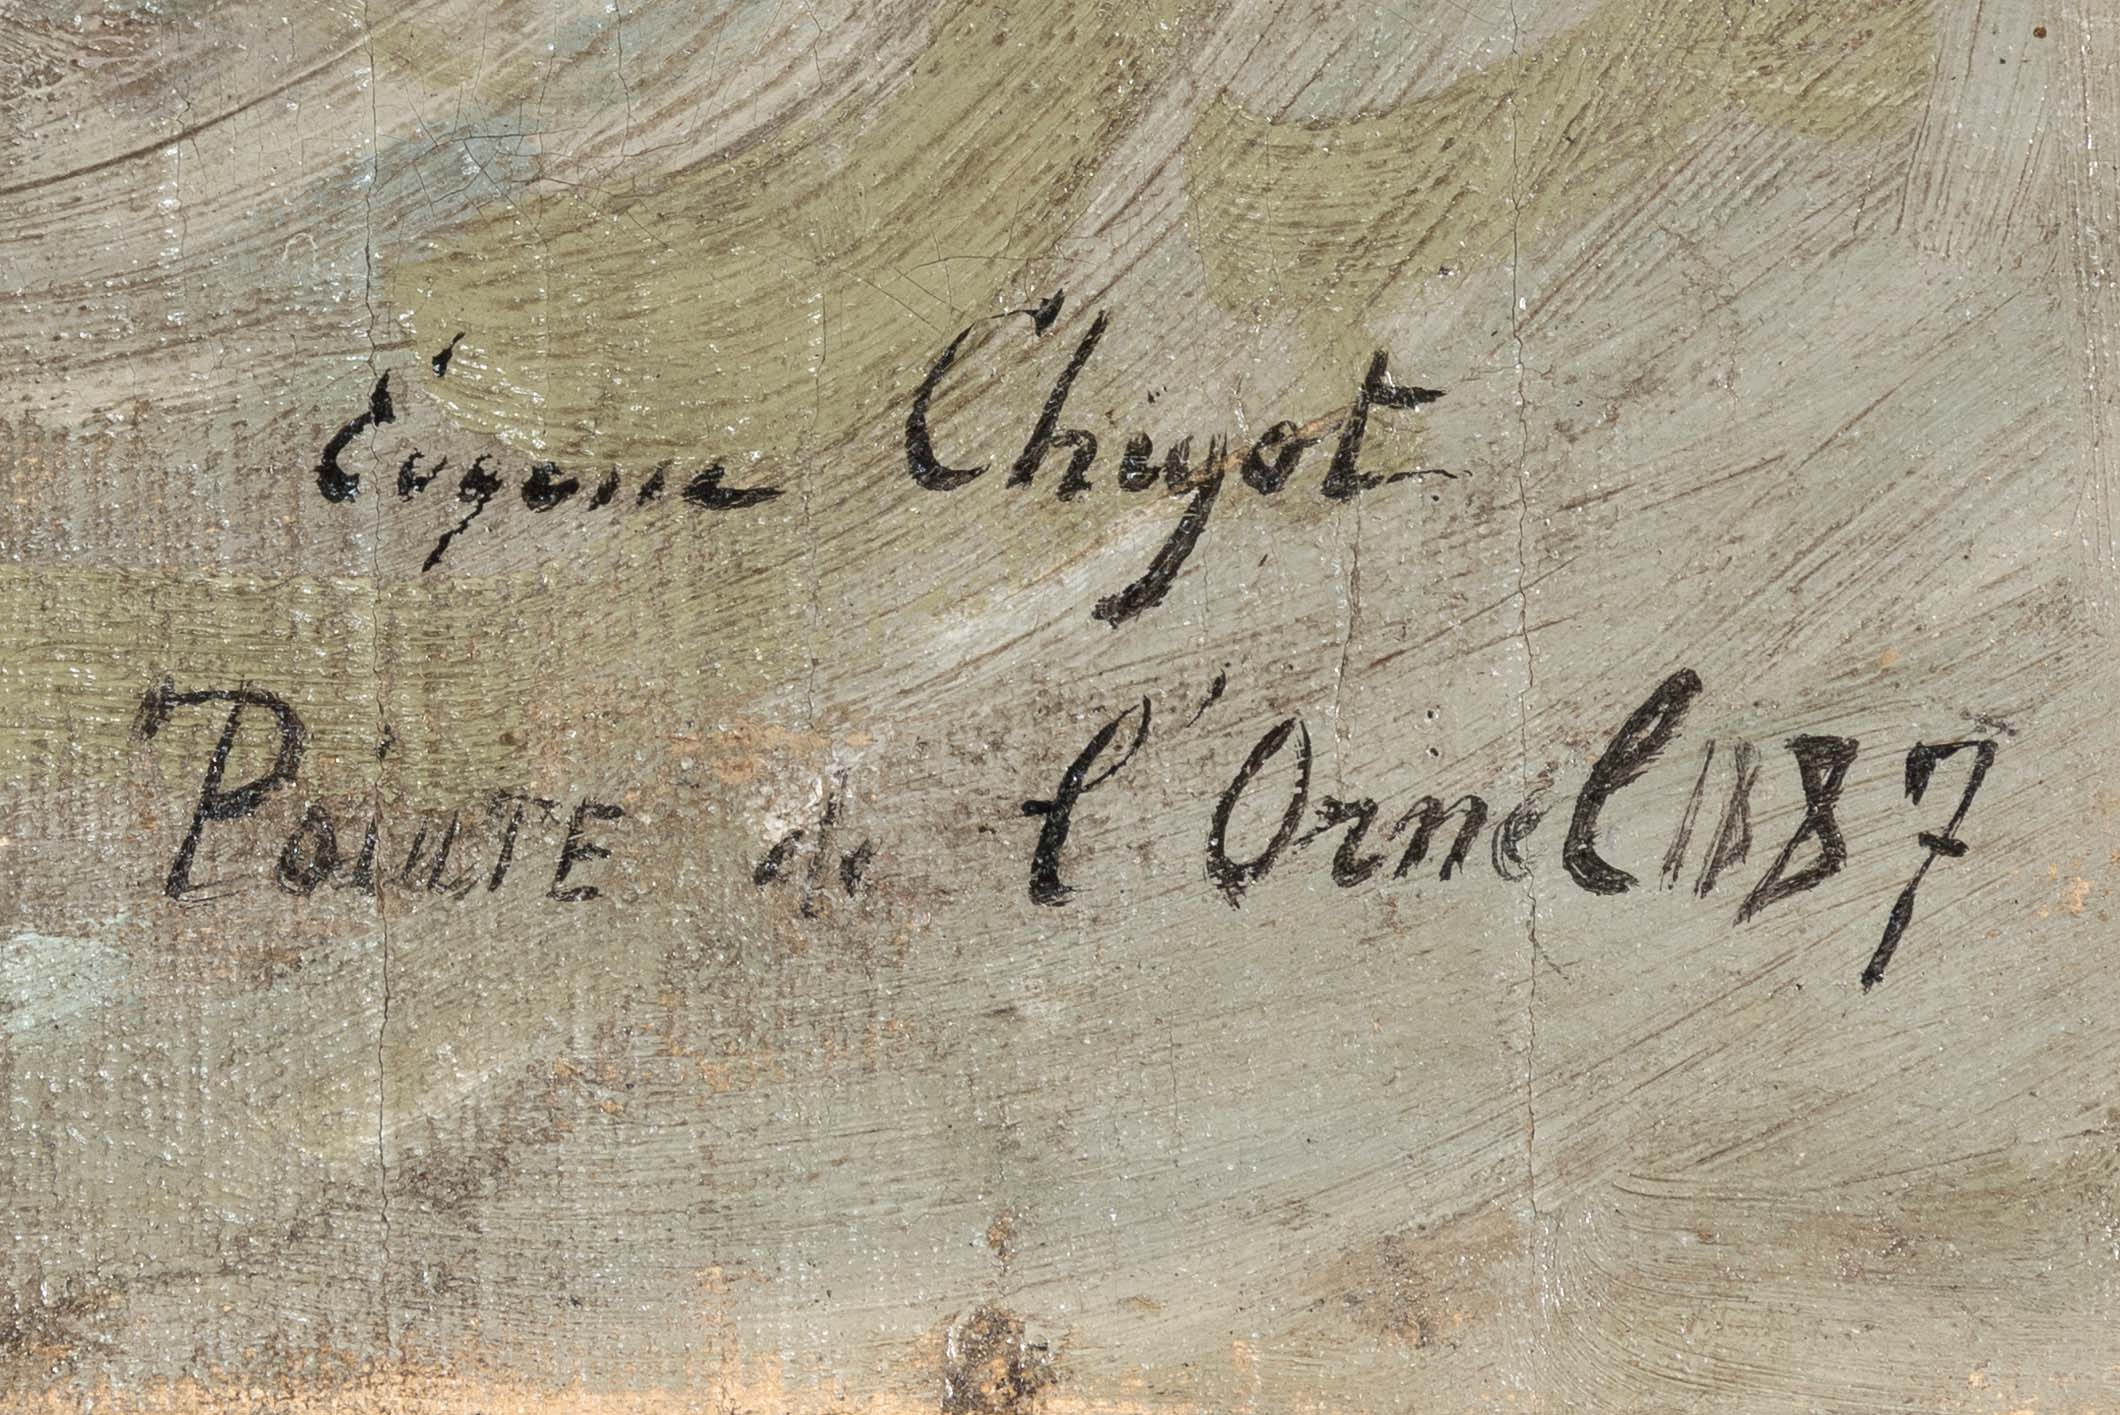 Eugène Chigot
Pointe de l'Ornel 1887